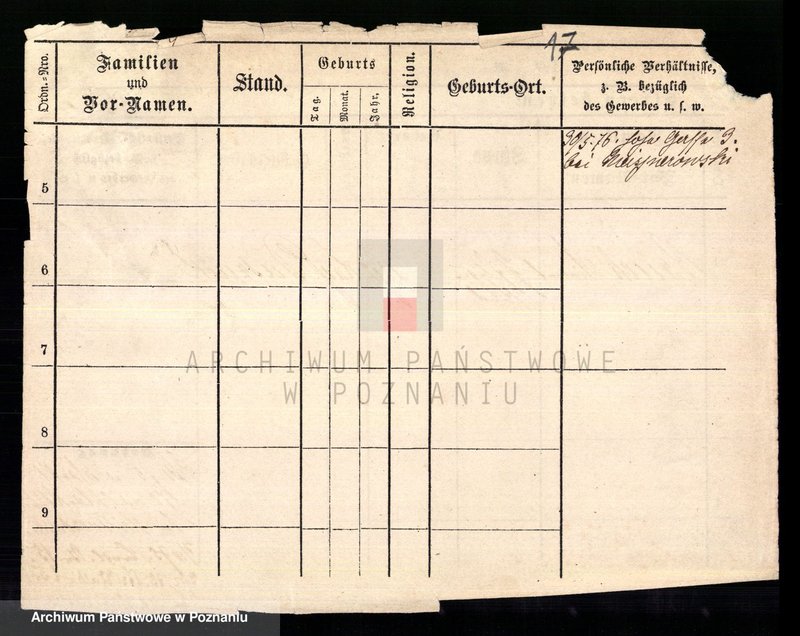 17
Ordn.-Nro.
Familien
und
Vor-Namen.
Stand.
Geburts
Tag.
Monat.
Jahr.
Religion.
Geburts-Ort.
Persönliche Verhältnisse,
z. B. bezüglich
des Gewerbes u. s. w.
30/5. 76. hohe Gasse 3.
bei
5
6
7
8
9
ARCHIWUM PAŃSTWOWE
W POZNANIU
Archiwum Państwowe w Poznaniu